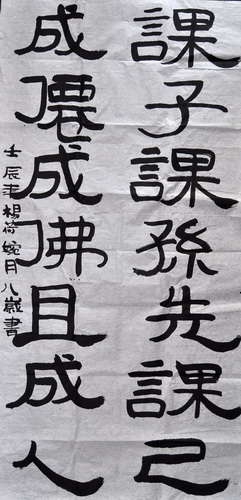 課子課孫先課己
成僊成佛且成人
壬辰年楊荷婉月八歲書